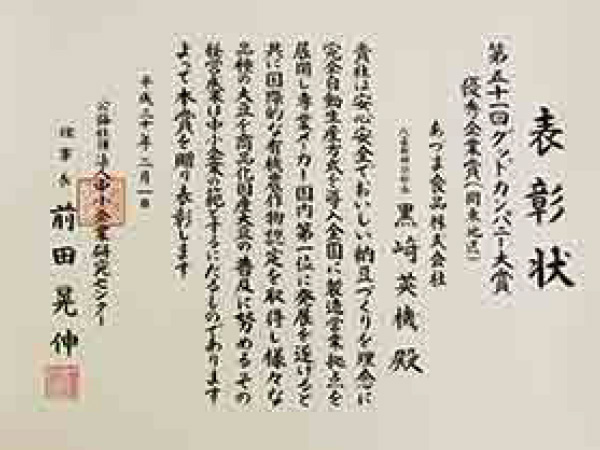 表彰状
第五十一回グッドカンパニー大賞
優秀企業賞(関東地区)
あづま食品株式会社
代表取締役社長 黒崎英機殿
貴社は安心安全でおいしい納豆づくりを理念に
完全自動生産方式を導入全国に製造営業拠点を
展開し専業メーカー国内第一位に発展を遂げると
共に国際的な有機農作物認定を取得し様々な
品種の大豆を商品化国産大豆の普及に努めるその
経営成果は中小企業の範とするにたるものであります
よって本賞を贈り表彰します
平成三十年二月一日
公益社団法人中小企業研究センター
理事長 前田晃伸